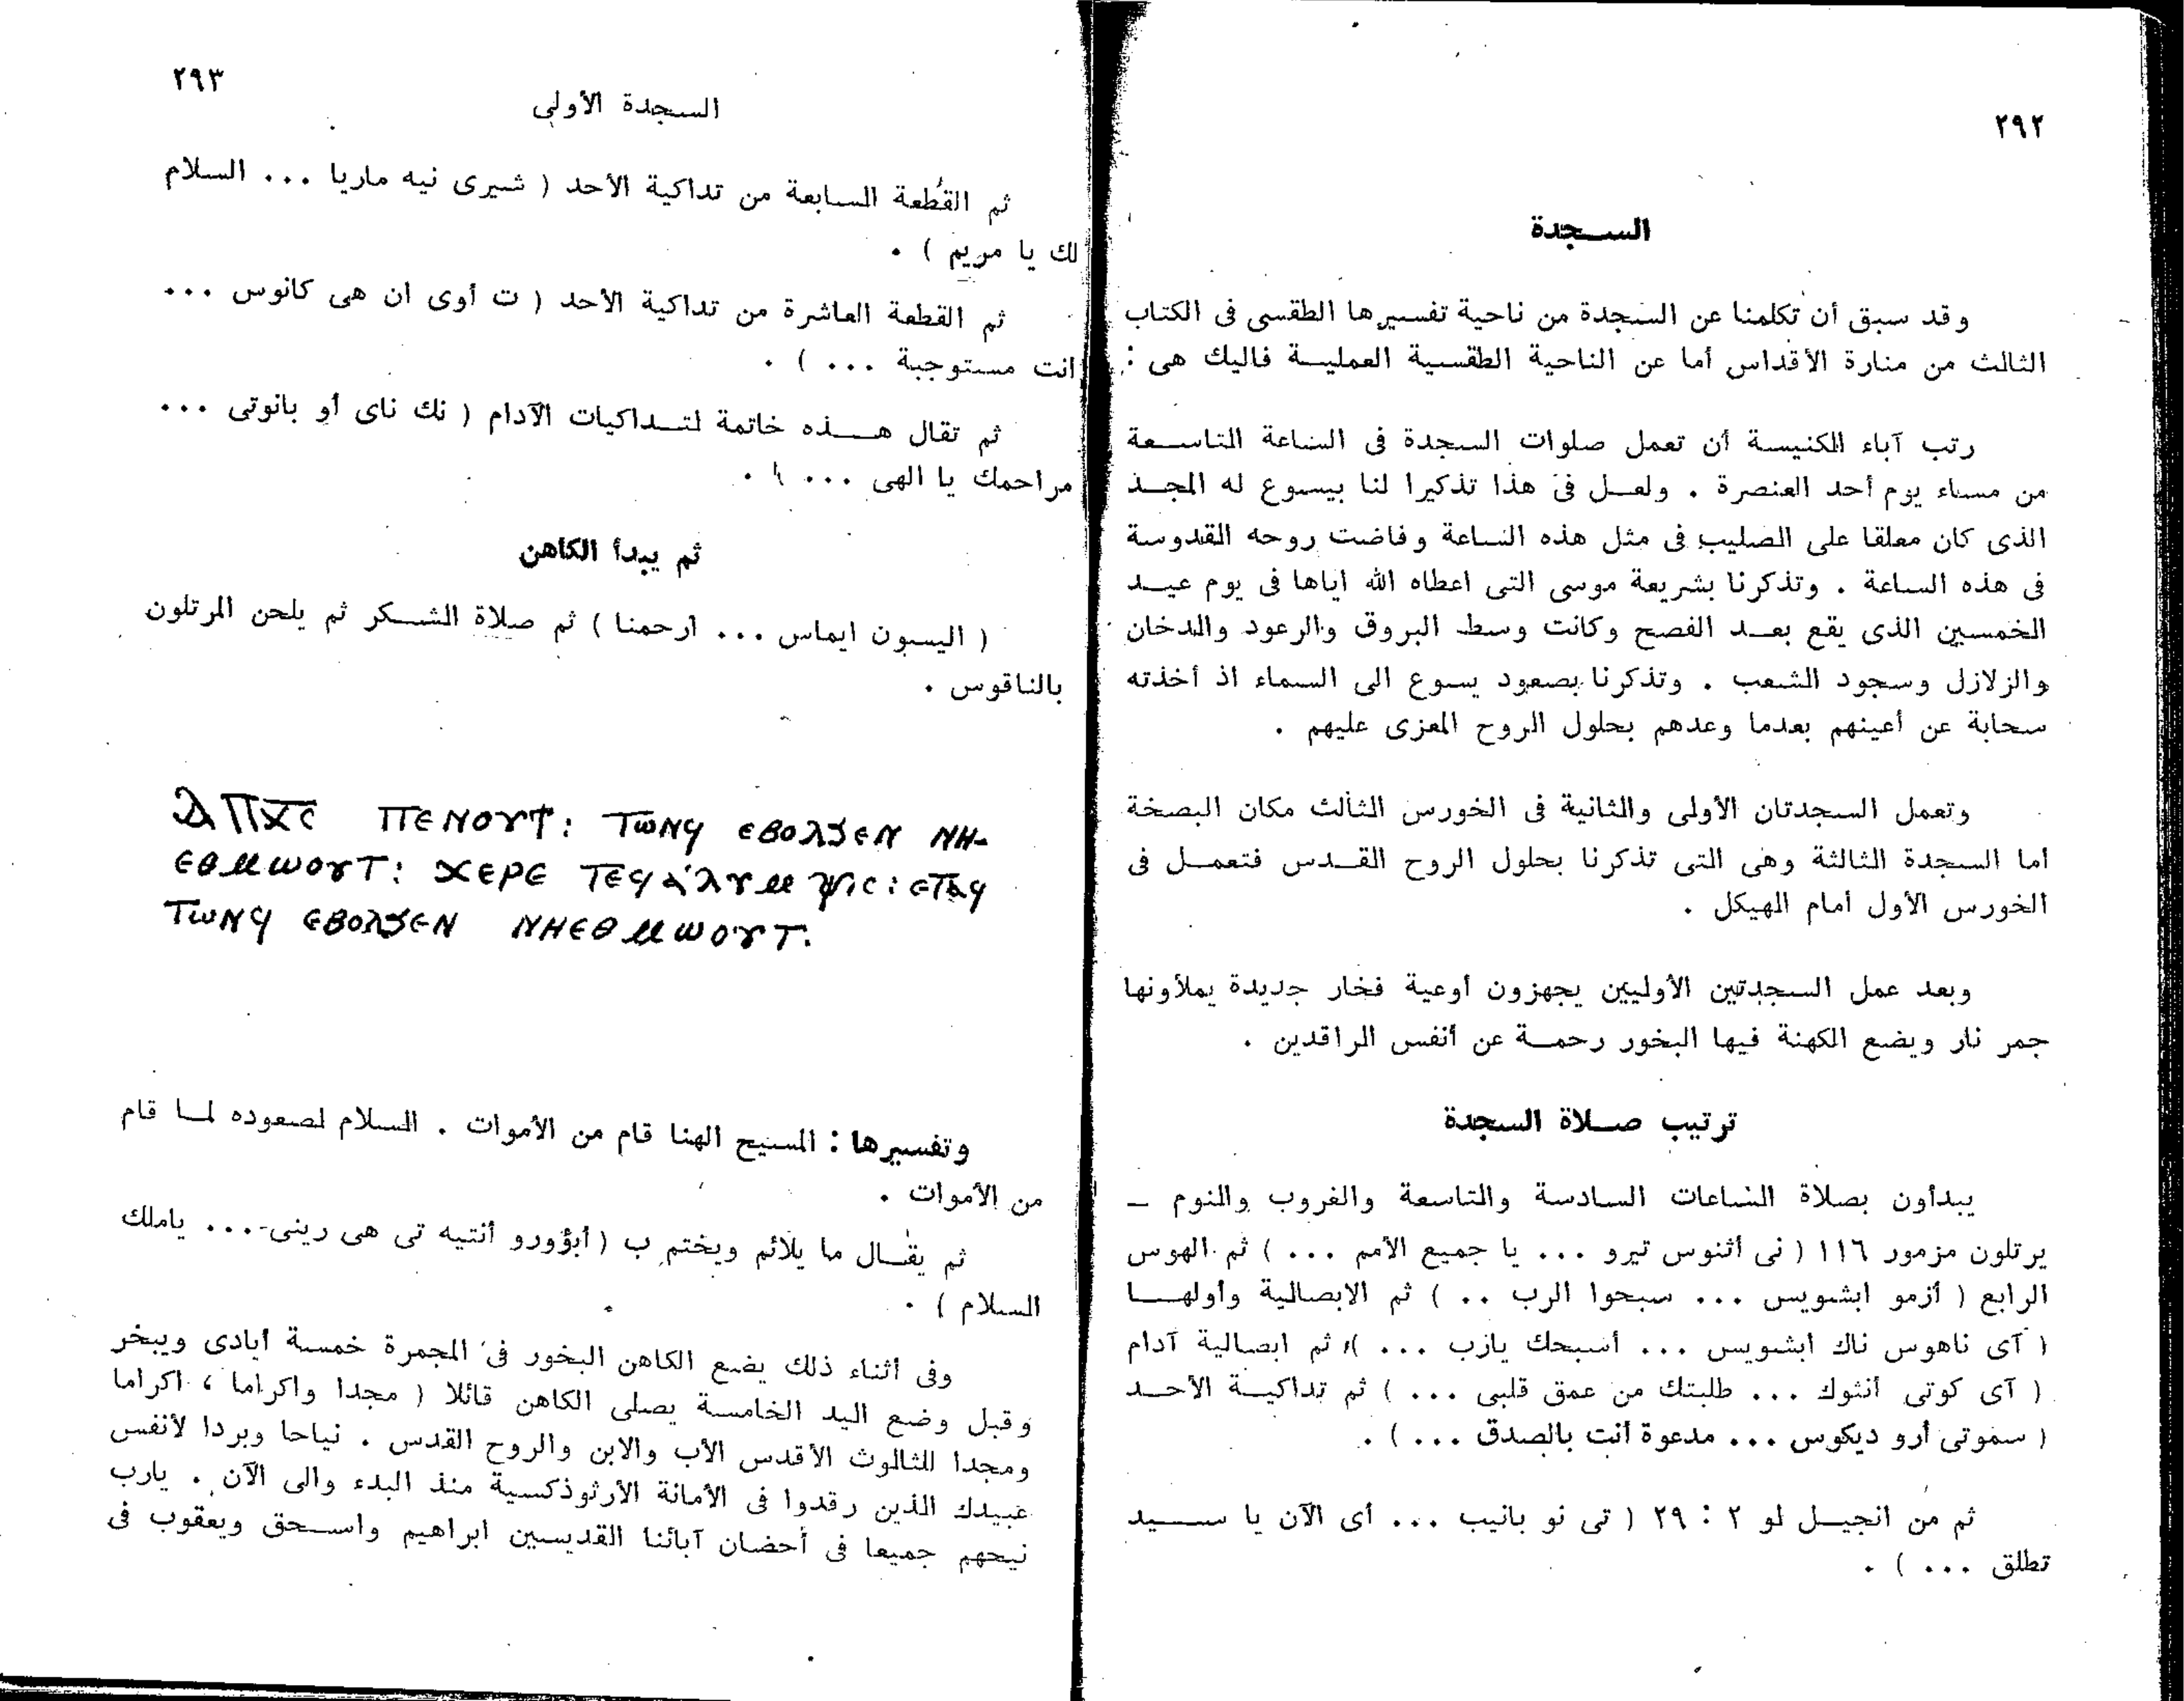 ٢٩٢
السـجدة
وقد سبق أن تكلمنا عن السجدة من ناحية تفسيرها الطقسى فى الكتاب
الثالث من منارة الأقداس أما عن الناحية الطقسية العمليـة فاليك هى :
رتب آباء الكنيسة أن تعمل صلوات السجدة فى الساعة التاسـعة
من مساء يوم أحد العنصرة . ولعـل فى هذا تذكيرا لنا بيسوع له المجـد
الذى كان معلقا على الصليب فى مثل هذه الساعة وفاضت روحه القدوسة
فى هذه الساعة . وتذكرنا بشريعة موسى التى اعطاه الله اياها فى يوم عيـد
الخمسين الذى يقع بعـد الفصح وكانت وسط البروق والرعود والدخان
والزلازل وسجود الشعب . وتذكرنا بصعود يسوع الى السماء اذ أخذته
سحابة عن أعينهم بعدما وعدهم بحلول الروح المعزى عليهم .
وتعمل السجدتان الأولى والثانية فى الخورس الثالث مكان البصخة
أما السجدة الثالثة وهى التى تذكرنا بحلول الروح القـدس فتعمـل فى
الخورس الأول أمام الهيكل .
وبعد عمل السجدتين الأوليين يجهزون أوعية فخار جديدة يملأونها
جمر نار ويضع الكهنة فيها البخور رحمـة عن أنفس الراقدين .
ترتيب صـلاة السجدة
يبدأون بصلاة الساعات السادسة والتاسعة والغروب والنوم ــ
يرتلون مزمور ١١٦ ( نى أثنوس تيرو ... يا جميع الأمم ... ) ثم الهوس
الرابع ( أزمو ابشويس ... سبحوا الرب .. ) ثم الابصالية وأولهـا
( آى ناهوس ناك ابشويس ... أسبحك يارب ... ) ثم ابصالية آدام
( آى كوتى أنثوك ... طلبتك من عمق قلبى ... ) ثم تداكيـة الأحـد
( سموتى أرو ديكوس ... مدعوة أنت بالصدق ... ) .
ثم من انجيـل لو ٢ : ٢٩ ( تى نو بانيب ... أى الآن يا سـيد
تطلق ... ) .
٢٩٣
السجدة الأولى
ثم القطعة السابعة من تداكية الأحد ( شيرى نيه ماريا ... السلام
لك يا مريم ) .
ثم القطعة العاشرة من تداكية الأحد ( ت أوى ان هى كانوس ...
انت مستوجبة ... ) .
ثم تقال هـذه خاتمة لتـداكيات الآدام ( نك ناى أو بانوتى ...
مراحمك يا الهى ... ) .
ثم يبدأ الكاهن
( اليسون ايماس ... ارحمنا ) ثم صلاة الشـكر ثم يلحن المرتلون
بالناقوس .
ⲁⲠⲬ̅Ⲥ̅ ⲠⲉⲛⲟⲩϮ: Ⲧⲱⲛϥ ⲉⲃⲟⲗϧⲉⲛ ⲛⲏ-
ⲉⲑⲙⲱⲟⲩⲧ: ⲭⲉⲣⲉ ⲧⲉϥⲁⲛⲁⲗⲩⲙⲯⲓⲥ: ⲉⲧⲁϥ
Ⲧⲱⲛϥ ⲉⲃⲟⲗϧⲉⲛ ⲛⲏⲉⲑⲙⲱⲟⲩⲧ.
وتفسيرها : المسيح الهنا قام من الأموات . السلام لصعوده لمـا قام
من الأموات .
ثم يقـال ما يلائم ويختم ب ( أبؤورو أنتيه تى هى رينى ... ياملك
السلام ) .
وفى أثناء ذلك يضع الكاهن البخور فى المجمرة خمسة أيادى ويبخر
وقبل وضع اليد الخامسة يصلى الكاهن قائلا ( مجدا واكراما ، اكراما
ومجدا للثالوث الأقدس الأب والابن والروح القدس . نياحا وبردا لأنفس
عبيدك الذين رقدوا فى الأمانة الأرثوذكسية منذ البدء والى الآن . يارب
نيحهم جميعا فى أحضان آبائنا القديسين ابراهيم واسـحق ويعقوب فى